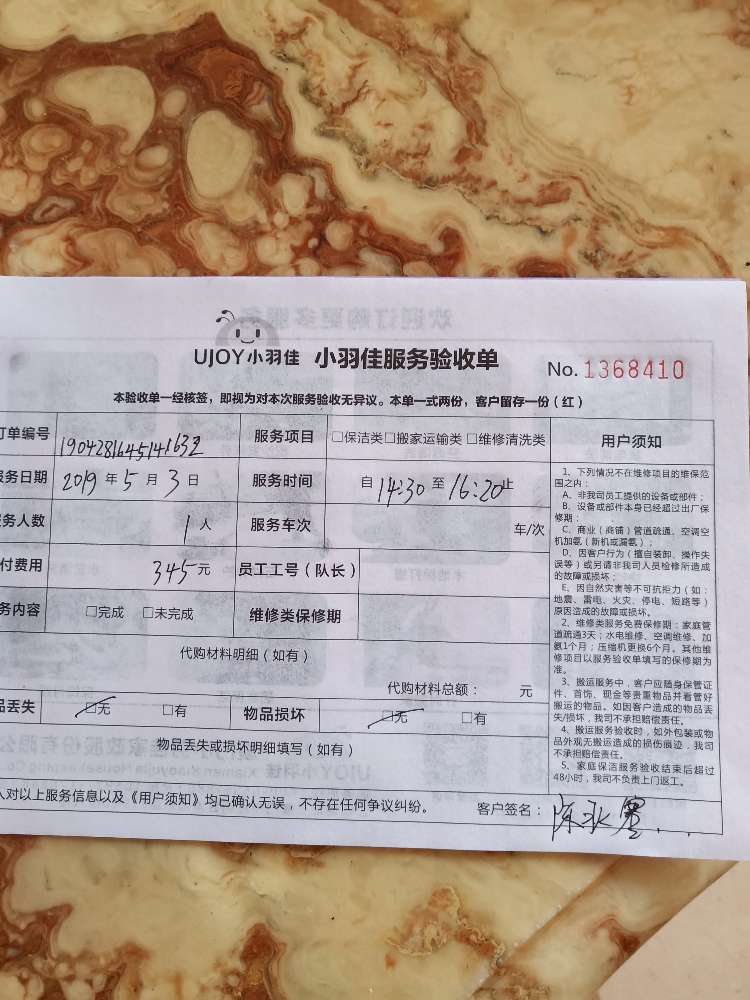 UJOY小羽佳 小羽佳服务验收单 No. 1368410
本验收单一经核签，即视为对本次服务验收无异议。本单一式两份，客户留存一份（红）
订单编号 服务项目 □保洁类□搬家运输类□维修清洗类 用户须知
服务日期 2019 年 5 月 3 日 服务时间 自 14:30 至 16:20止
务人数 1 人 服务车次 车/次
付费用 345元 员工工号（队长）
务内容 □完成 □未完成 维修类保修期
代购材料明细（如有）
代购材料总额： 元
品丢失 □无 □有 物品损坏 □无 □有
物品丢失或损坏明细填写（如有）
人对以上服务信息以及《用户须知》均已确认无误，不存在任何争议纠纷。 客户签名：
1、下列情况不在维修项目的维保范
围之内：
A、非我司员工提供的设备或部件；
B、设备或部件本身已经超过出厂保
修期；
C、商业（商铺）管道疏通、空调空
机加氨（新机或漏氨）；
D、因客户行为（擅自装卸、操作失
误等）或另请非我司人员检修所造成
的故障或损坏；
E、因自然灾害等不可抗拒力（如：
地震、雷电、火灾、停电、短路等）
原因造成的故障或损坏。
2、维修类服务免费保修期：家庭管
道疏通3天；水电维修、空调维修、加
氨1个月；压缩机更换6个月。其他维
修项目以服务验收单填写的保修期为
准。
3、搬运服务中，客户应随身保管证
件、首饰、现金等贵重物品并看管好
搬运的物品。如因客户造成的物品丢
失/损坏，我司不承担赔偿责任。
4、搬运服务验收时，如外包装或物
品外观无搬运造成的损伤痕迹，我司
不承担赔偿责任。
5、家庭保洁服务验收结束后超过
48小时，我司不负责上门返工。